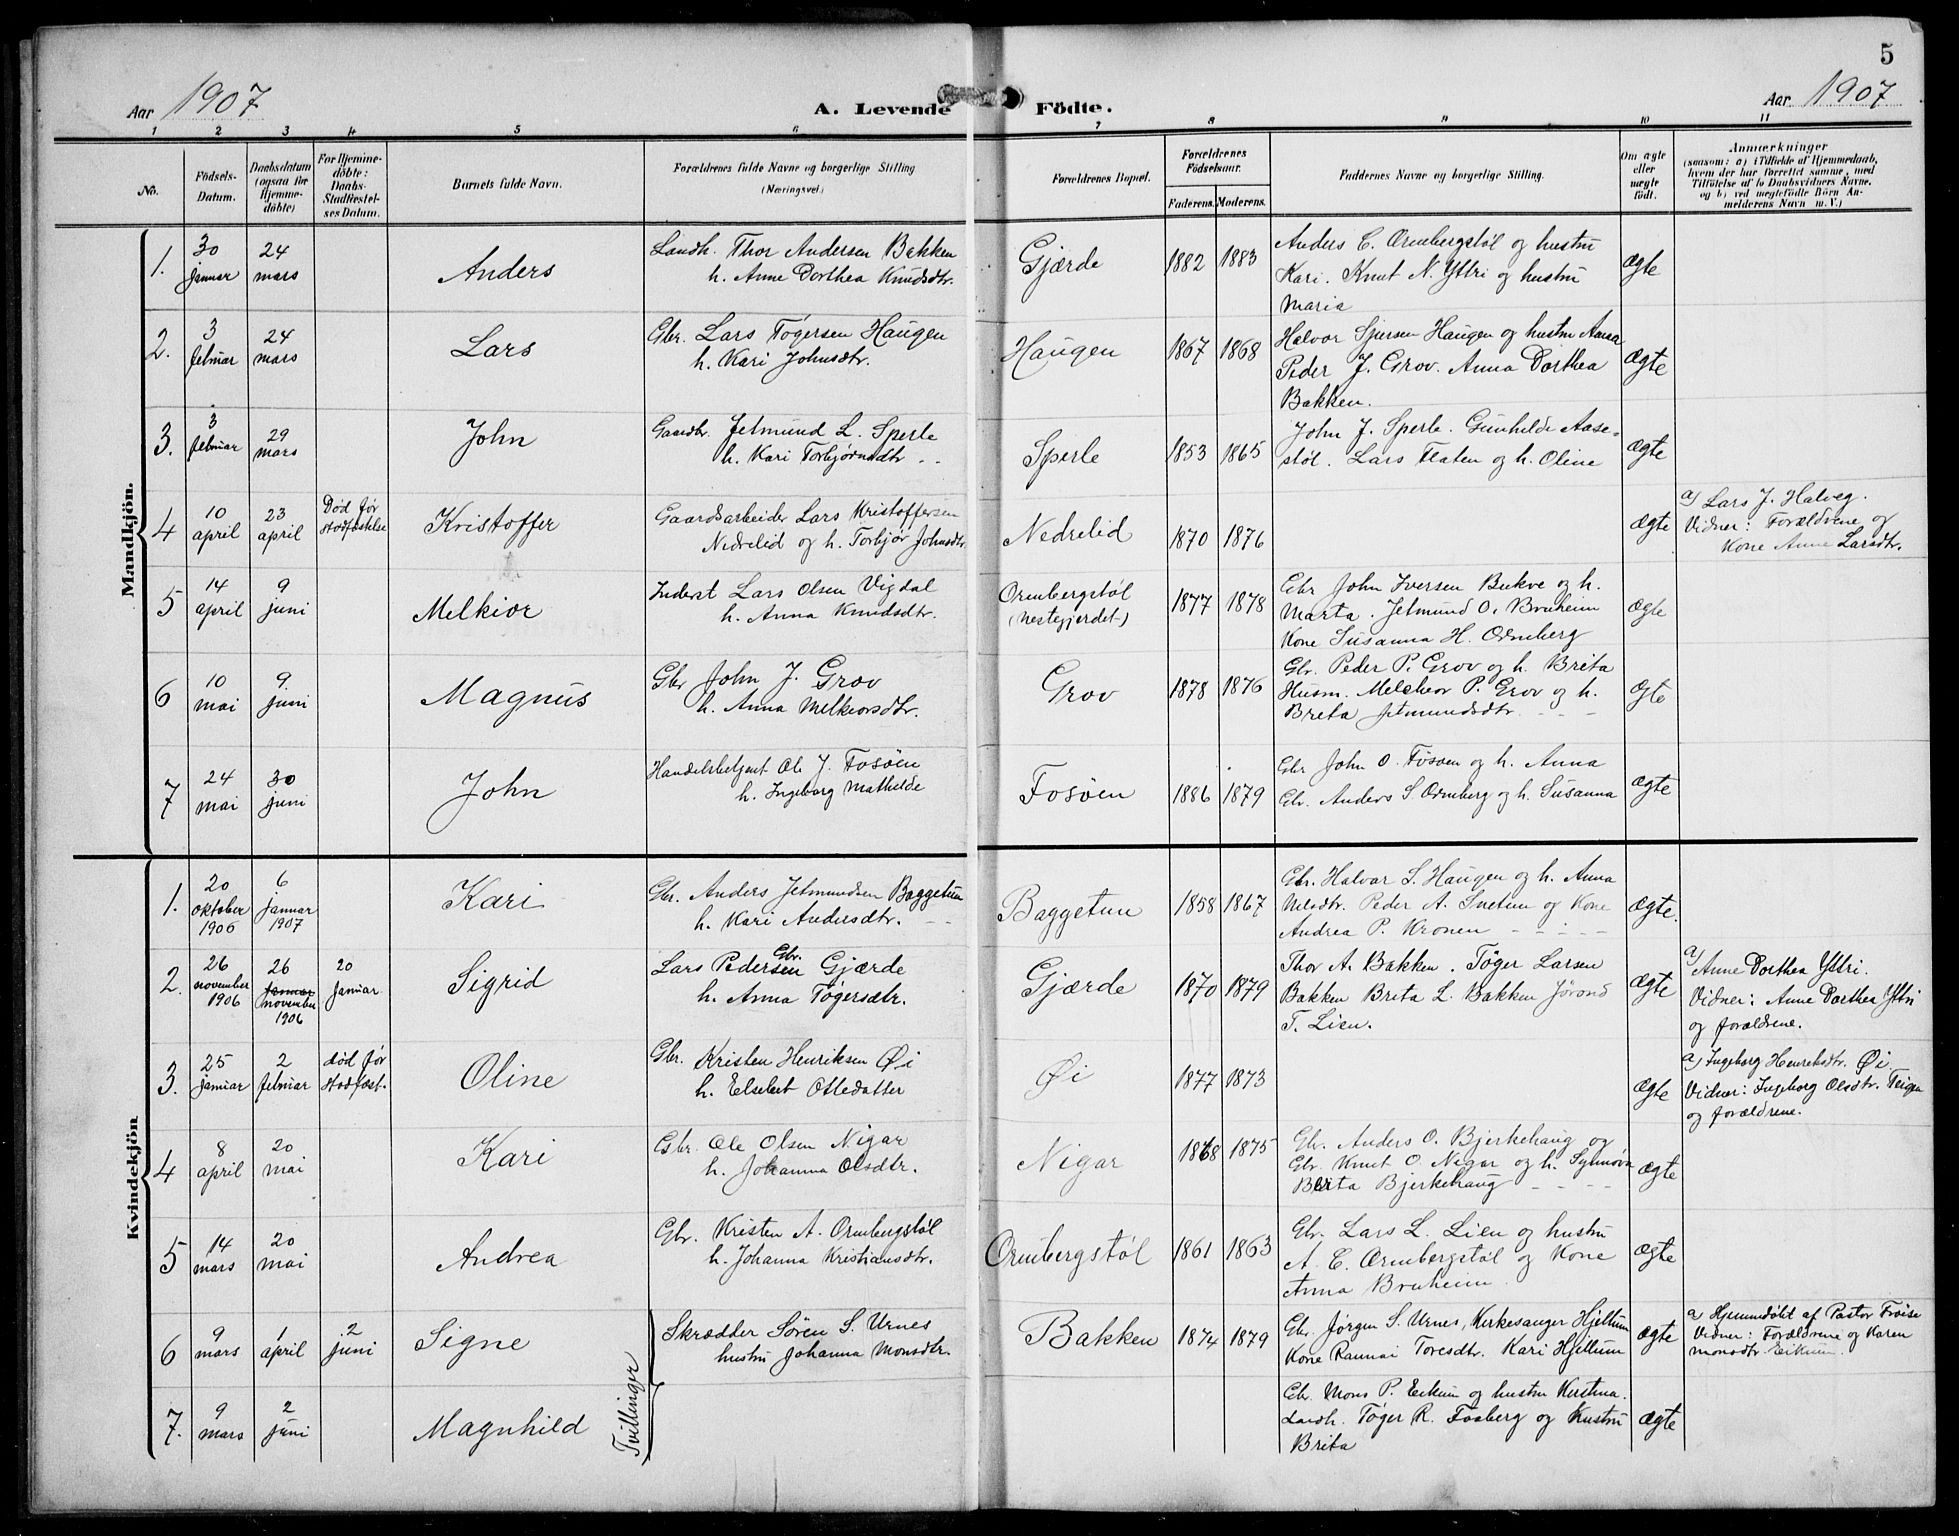 5
Aar 1907
A. Levende Födte.
Aar 1907
1 2 3 4 5 6 7 8 9 10 11
No.
Födsels-Datum.
Daabsdatum (ogsaa för Hjemme-döbte)
For Hjemme-döbte: Daabs-Stadfæstel-ses Datum.
Barnets fulde Navn.
Forældrenes fulde Navne og borgerlige Stilling (Næringsvei)
Forældrenes Bopæl.
Forældrenes Födselsaar.
Faderens. Moderens.
Faddernes Navne og borgerlige Stilling.
Om ægte eller uægte födt.
Anmærkninger
(saasom: a) i Tilfælde af Hjemmedaab,
hvem der har forrettet samme, med
Tilföielse af to Daabsvidners Navne,
og b) ved uægtefödte Börn An-
melderens Navn m. V.)
Mandkjön.
1. 30 januar
24 mars
Anders
Landh. Thor Andersen Bakken
h. Anne Dorthea Knudsdtr.
Gjærde
1882 1883
Anders C. Ormbergstøl og hustru
Kari. Knut N. Yttri og hustru
Maria
ægte
2. 3 februar
24 mars
Lars
Gbr. Lars Tøgersen Haugen
h. Kari Johnsdtr.
Haugen
1867 1868
Halvor Sjursen Haugen og hustru Anna
Peder J. Grov. Anna Dorthea
Bakken.
ægte
3. 3 februar
29 mars
John
Gaardbr. Jetmund L. Sperle
h. Kari Torbjørnsdtr - -
Sperle
1853 1865
John J. Sperle. Gunhilde Aase-
støl. Lars Flaten og h. Oline
ægte
4 10 april
23 april
Død før stadfæstelse
Kristoffer
Gaardsarbeider Lars Kristoffersen
Nedrelid og h. Torbjør Johnsdtr
Nedrelid
1870 1876
ægte
a) Lars J. Halveg.
Vidner: Forældrene og
Kone Anne Larsdtr.
5 14 april
9 juni
Melkior
Inderst Lars Olsen Vigdal
h. Anna Knudsdtr.
Ormbergstøl
(Nestegjerdet)
1877 1878
Gbr John Iversen Bukve og h.
Marta. Jetmund O. Bruheim
Kone Susanna H. Ormberg
ægte
6 10 mai
9. juni
Magnus
Gbr John J. Grov
h. Anna Melkiorsdtr.
Grov
1878 1876
Gbr. Peder P. Grov og h. Brita
Husm. Melchior P. Grov og h.
Brita Jetmundsdtr. - - -
ægte
7 24 mai
30 juni
John
Handelsbetjent Ole J. Fosøen
h. Ingeborg Mathilde
Fosøen
1886 1879
Gbr John O. Fosøen og h. Anna
Gbr. Anders S. Ormberg og h. Susanna
ægte
Kvindekjön
1. 20 oktober 1906
6 januar 1907
Kari
Gbr. Anders Jetmundsen Baggetun
h. Kari Andersdtr. -
Baggetun
1858 1867
Gbr. Halvar S. Haugen og h. Anna
Nilsdtr. Peder A. Snetun og Kone
Andrea P. Kronen - - - -
ægte.
2. 26 november 1906
26 januar november 1906
20 januar
Sigrid
Gbr.
Lars Pedersen Gjærde
h. Anna Tøgersdtr.
Gjærde
1870 1879
Thor A. Bakken. Tøger Larsen
Bakken Brita L. Bakken Jørond
T. Lien.
ægte
a) Anne Dorthea Yttri.
Vidner: Anne Dorthea Yttri
og forældrene.
3. 25 januar
2 februar
død før stadfæst.
Oline
Gbr. Kristen Henriksen Øi
h. Elsebet Ottedatter
Øi
1877 1873
ægte
a) Ingeborg Henriksdtr. Øi
Vidner: Ingeborg Olsdtr. Teigen
og forældrene.
4 8 april
20 mai
Kari
Gbr. Ole Olsen Nigar
h. Johanna Olsdtr.
Nigar
1868 1875
Gbr. Anders O. Bjerkehaug og
Gbr. Knut O. Nigar og h. Synnøva
Berita Bjerkehaug - - - -
ægte
5 14 mars
20 mai
Andrea
Gbr. Kristen A. Ormbergstøl
h. Johanna Kristiansdtr.
Ormbergstøl
1861 1863
Gbr. Lars L. Lien og hustru
A. C. Ormbergstøl og Kone
Anna Bruheim
ægte
6 9 mars
1 april
2 juni
Signe
Tvillinger
Skrædder Søren S. Urnes
hustru Johanna Monsdtr.
Bakken
1874 1879
Gbr. Jørgen S. Urnes, Kirkesanger Hjellum
Kone Rannai Toresdtr. Kari Hjellum
ægte
a) Hjemmedøbt af Pastor Frøise
Vidner: Forældrene og Karen
Monsdtr. Eikum.
7. 9 mars
2 juni
Magnhild
Gbr. Mons P. Eikum og hustru Kirstina.
Landh. Tøger R. Faaberg og hustru
Brita
ægte